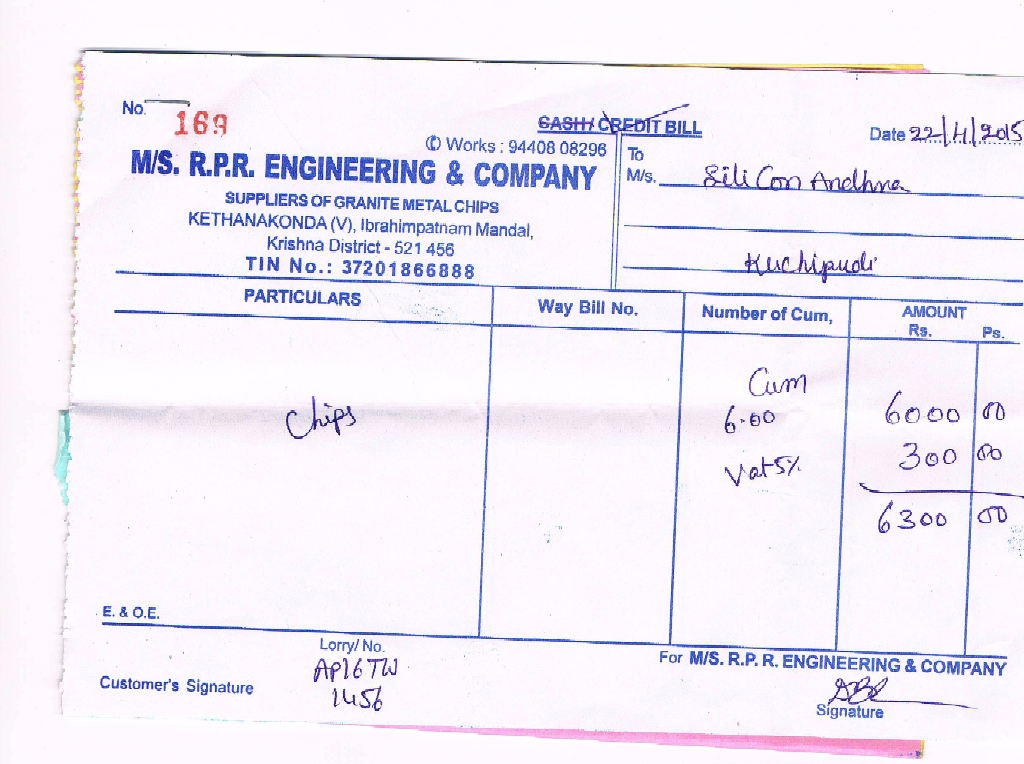 No. 169
CASH / CREDIT BILL
Date 22/4/2015
✆ Works : 94408 08296
M/S. R.P.R. ENGINEERING & COMPANY
SUPPLIERS OF GRANITE METAL CHIPS
KETHANAKONDA (V), Ibrahimpatnam Mandal,
Krishna District - 521 456
TIN No.: 37201866888
To
M/s. Sili Con Andhra
Kuchipudi
PARTICULARS Way Bill No. Number of Cum, AMOUNT
Rs. Ps.
Cum
Chips 6.00 6000 00
Vat 5% 300 00
6300 00
E. & O.E.
Lorry/ No.
AP16TW
1456
Customer's Signature
For M/S. R.P.R. ENGINEERING & COMPANY
Signature